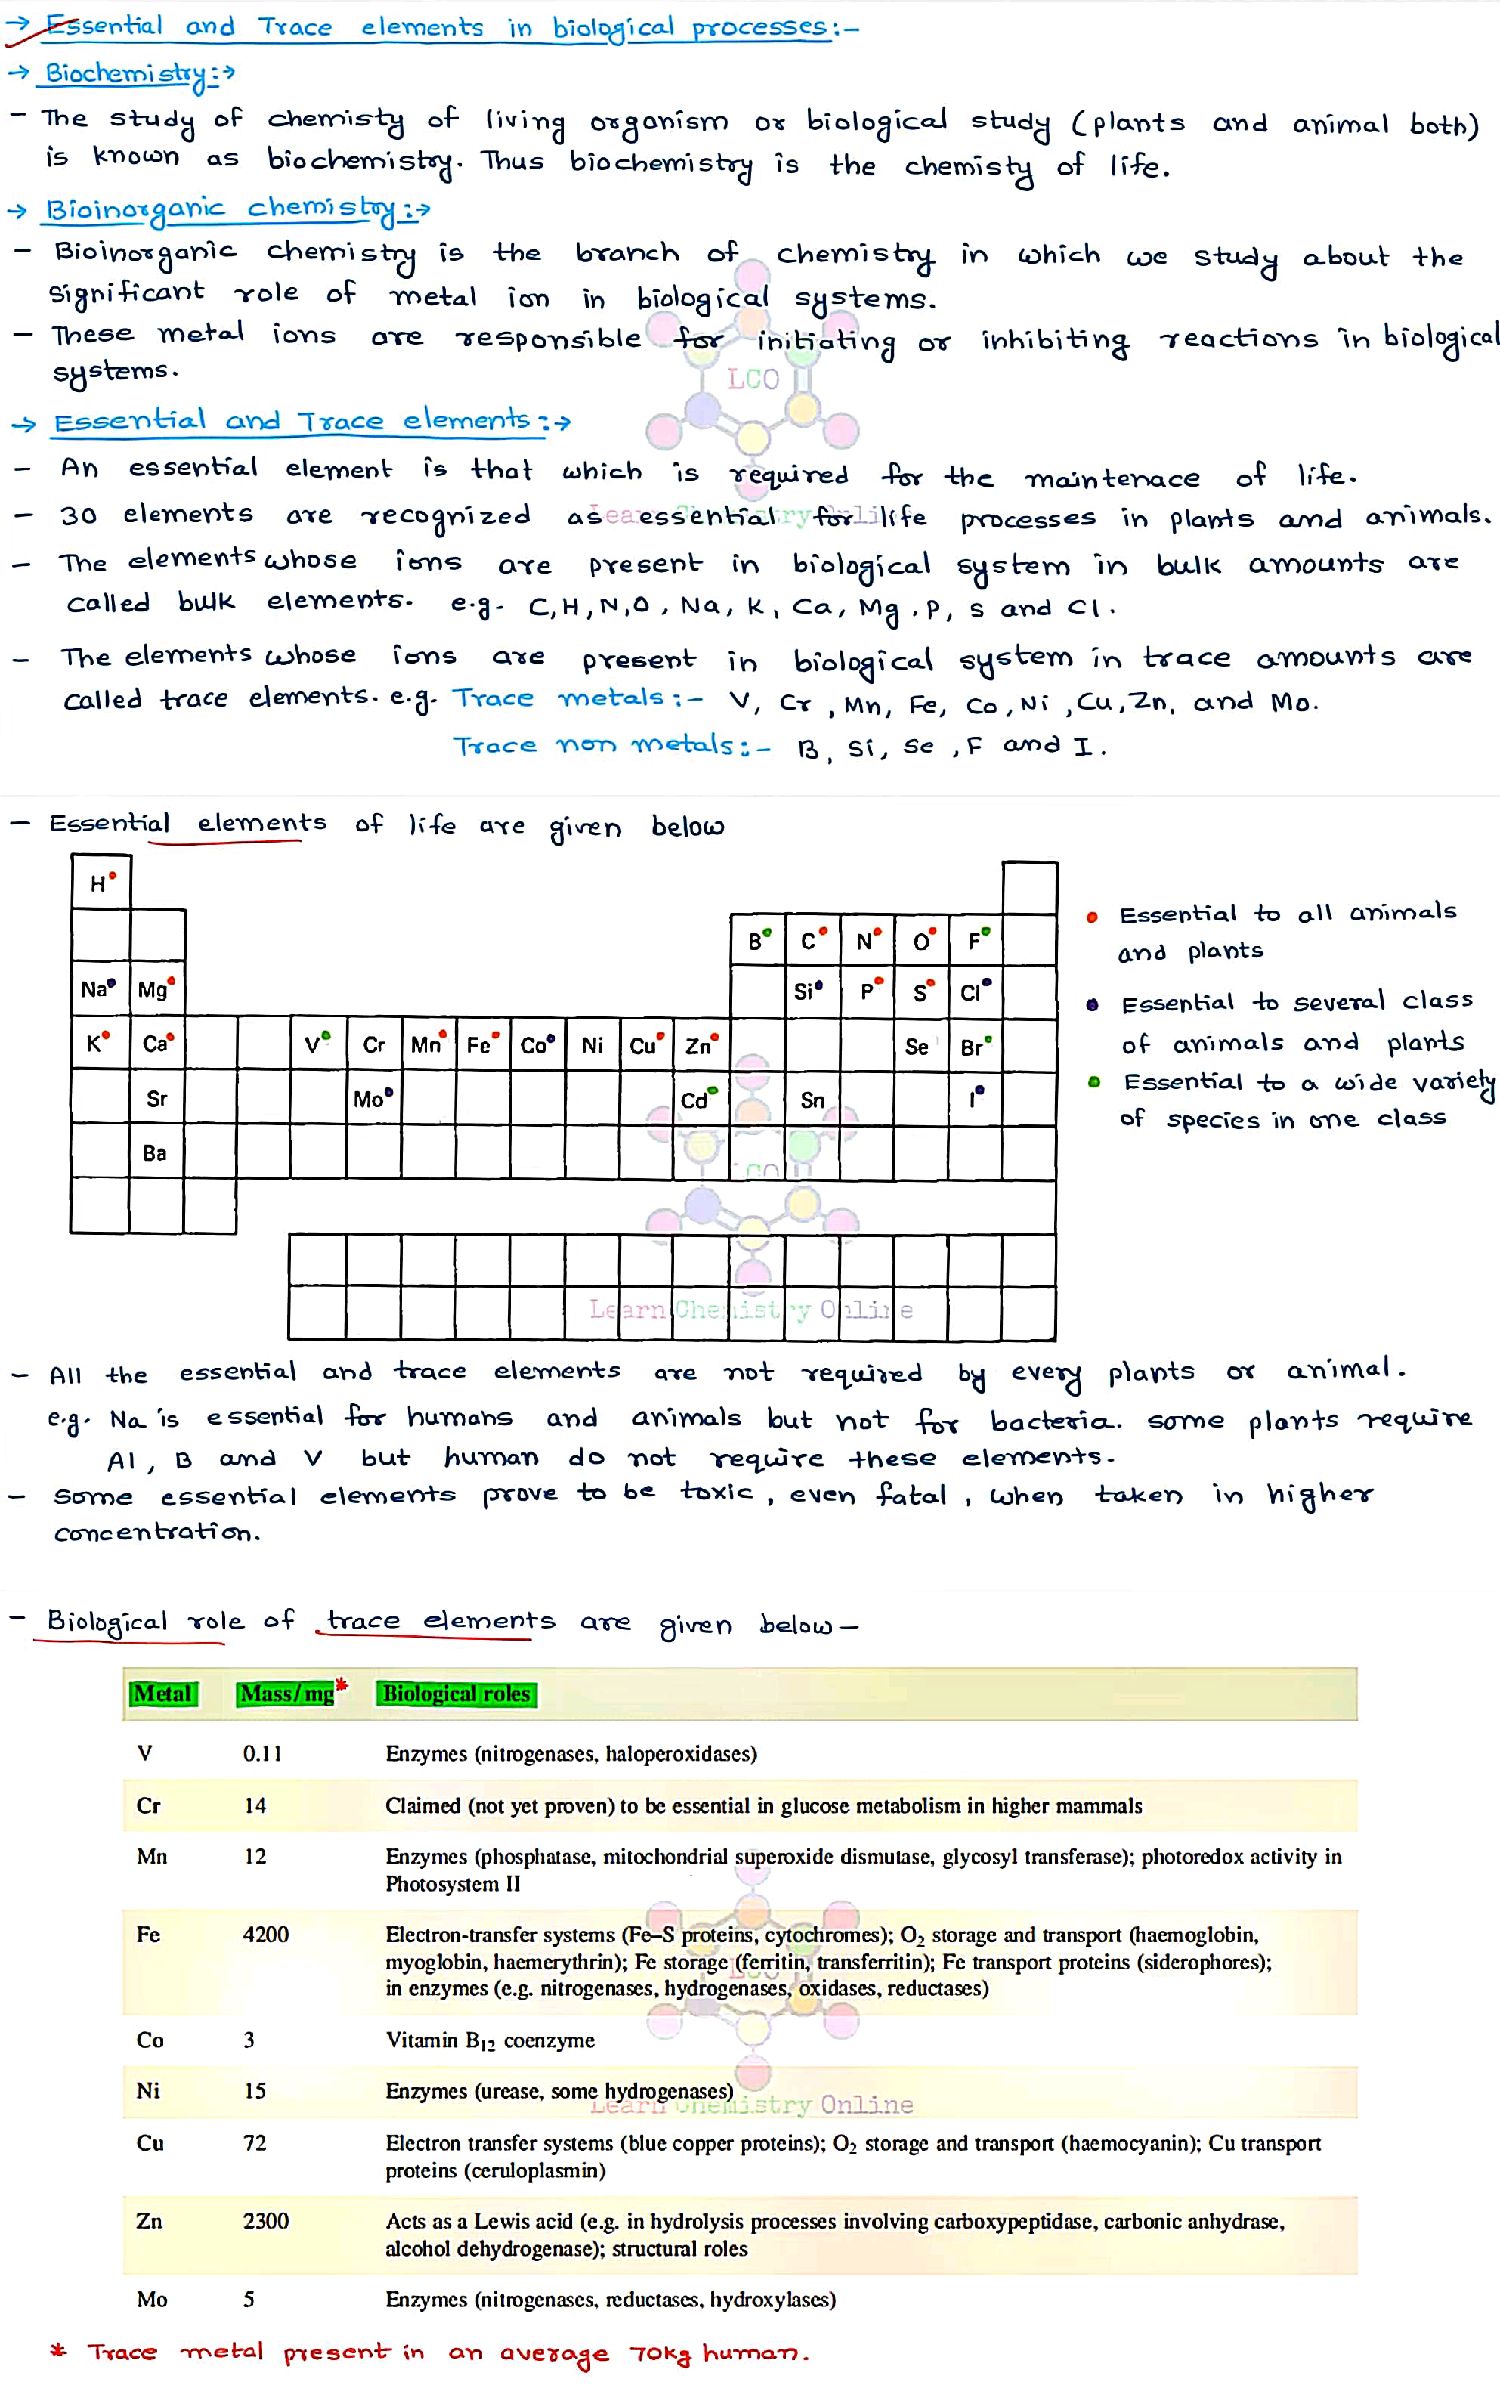 → Essential and Trace elements in biological processes:-
→ Biochemistry:→
- The study of chemisty of living organism or biological study (plants and animal both)
is known as biochemistry. Thus biochemistry is the chemisty of life.
→ Bioinorganic chemistry:→
- Bioinorganic chemistry is the branch of chemistry in which we study about the
significant role of metal ion in biological systems.
- These metal ions are responsible for initiating or inhibiting reactions in biological
systems.
LCO
→ Essential and Trace elements:→
- An essential element is that which is required for the maintenace of life.
- 30 elements are recognized as essential for life processes in plants and animals.
Learn Chemistry Online
- The elements whose ions are present in biological system in bulk amounts are
called bulk elements. e.g. C,H,N,O, Na, K, Ca, Mg, P, S and Cl.
- The elements whose ions are present in biological system in trace amounts are
called trace elements. e.g. Trace metals:- V, Cr, Mn, Fe, Co, Ni, Cu, Zn, and Mo.
Trace non metals:- B, Si, Se, F and I.
- Essential elements of life are given below
H
B C N O F
Na Mg Si P S Cl
K Ca V Cr Mn Fe Co Ni Cu Zn Se Br
Sr Mo Cd Sn I
Ba
• Essential to all animals
and plants
• Essential to several class
of animals and plants
• Essential to a wide variety
of species in one class
LCO
Learn Chemistry Online
- All the essential and trace elements are not required by every plants or animal.
e.g. Na is essential for humans and animals but not for bacteria. some plants require
Al, B and V but human do not require these elements.
- Some essential elements prove to be toxic, even fatal, when taken in higher
concentration.
- Biological role of trace elements are given below-
Metal Mass/mg* Biological roles
V 0.11 Enzymes (nitrogenases, haloperoxidases)
Cr 14 Claimed (not yet proven) to be essential in glucose metabolism in higher mammals
Mn 12 Enzymes (phosphatase, mitochondrial superoxide dismutase, glycosyl transferase); photoredox activity in
Photosystem II
Fe 4200 Electron-transfer systems (Fe–S proteins, cytochromes); O₂ storage and transport (haemoglobin,
myoglobin, haemerythrin); Fe storage (ferritin, transferritin); Fe transport proteins (siderophores);
in enzymes (e.g. nitrogenases, hydrogenases, oxidases, reductases)
LCO
Co 3 Vitamin B₁₂ coenzyme
Ni 15 Enzymes (urease, some hydrogenases)
Learn Chemistry Online
Cu 72 Electron transfer systems (blue copper proteins); O₂ storage and transport (haemocyanin); Cu transport
proteins (ceruloplasmin)
Zn 2300 Acts as a Lewis acid (e.g. in hydrolysis processes involving carboxypeptidase, carbonic anhydrase,
alcohol dehydrogenase); structural roles
Mo 5 Enzymes (nitrogenases, reductases, hydroxylases)
* Trace metal present in an average 70kg human.